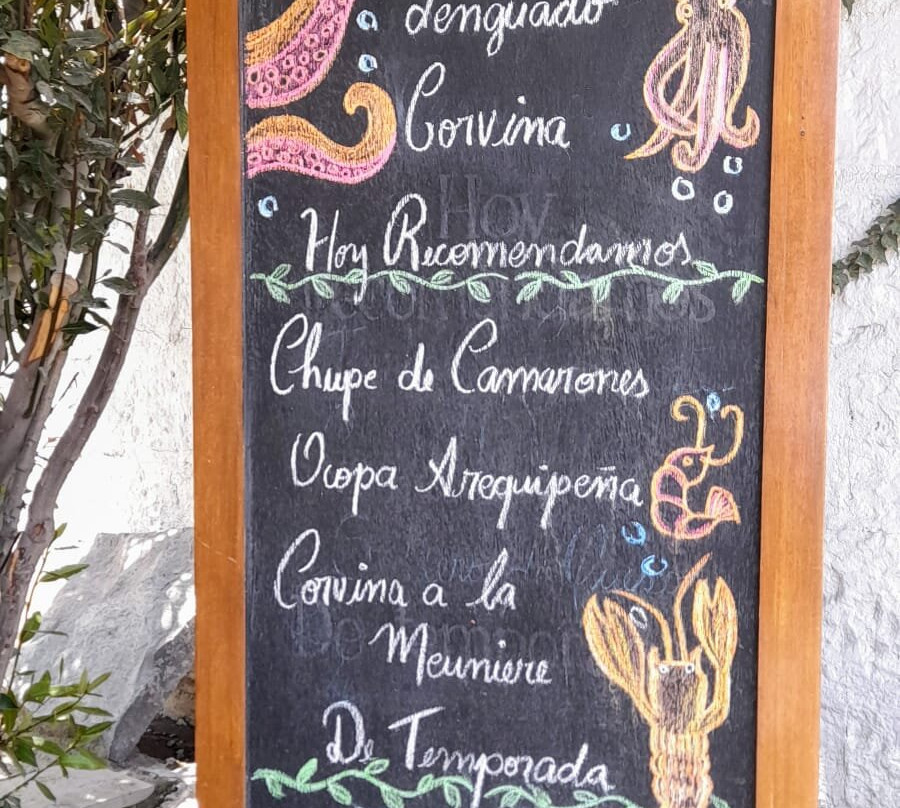 Lenguado
Corvina
Hoy
Hoy Recomendamos
Chupe de Camarones
Ocopa Arequipeña
Corvina a la
Meuniere
De Temporada